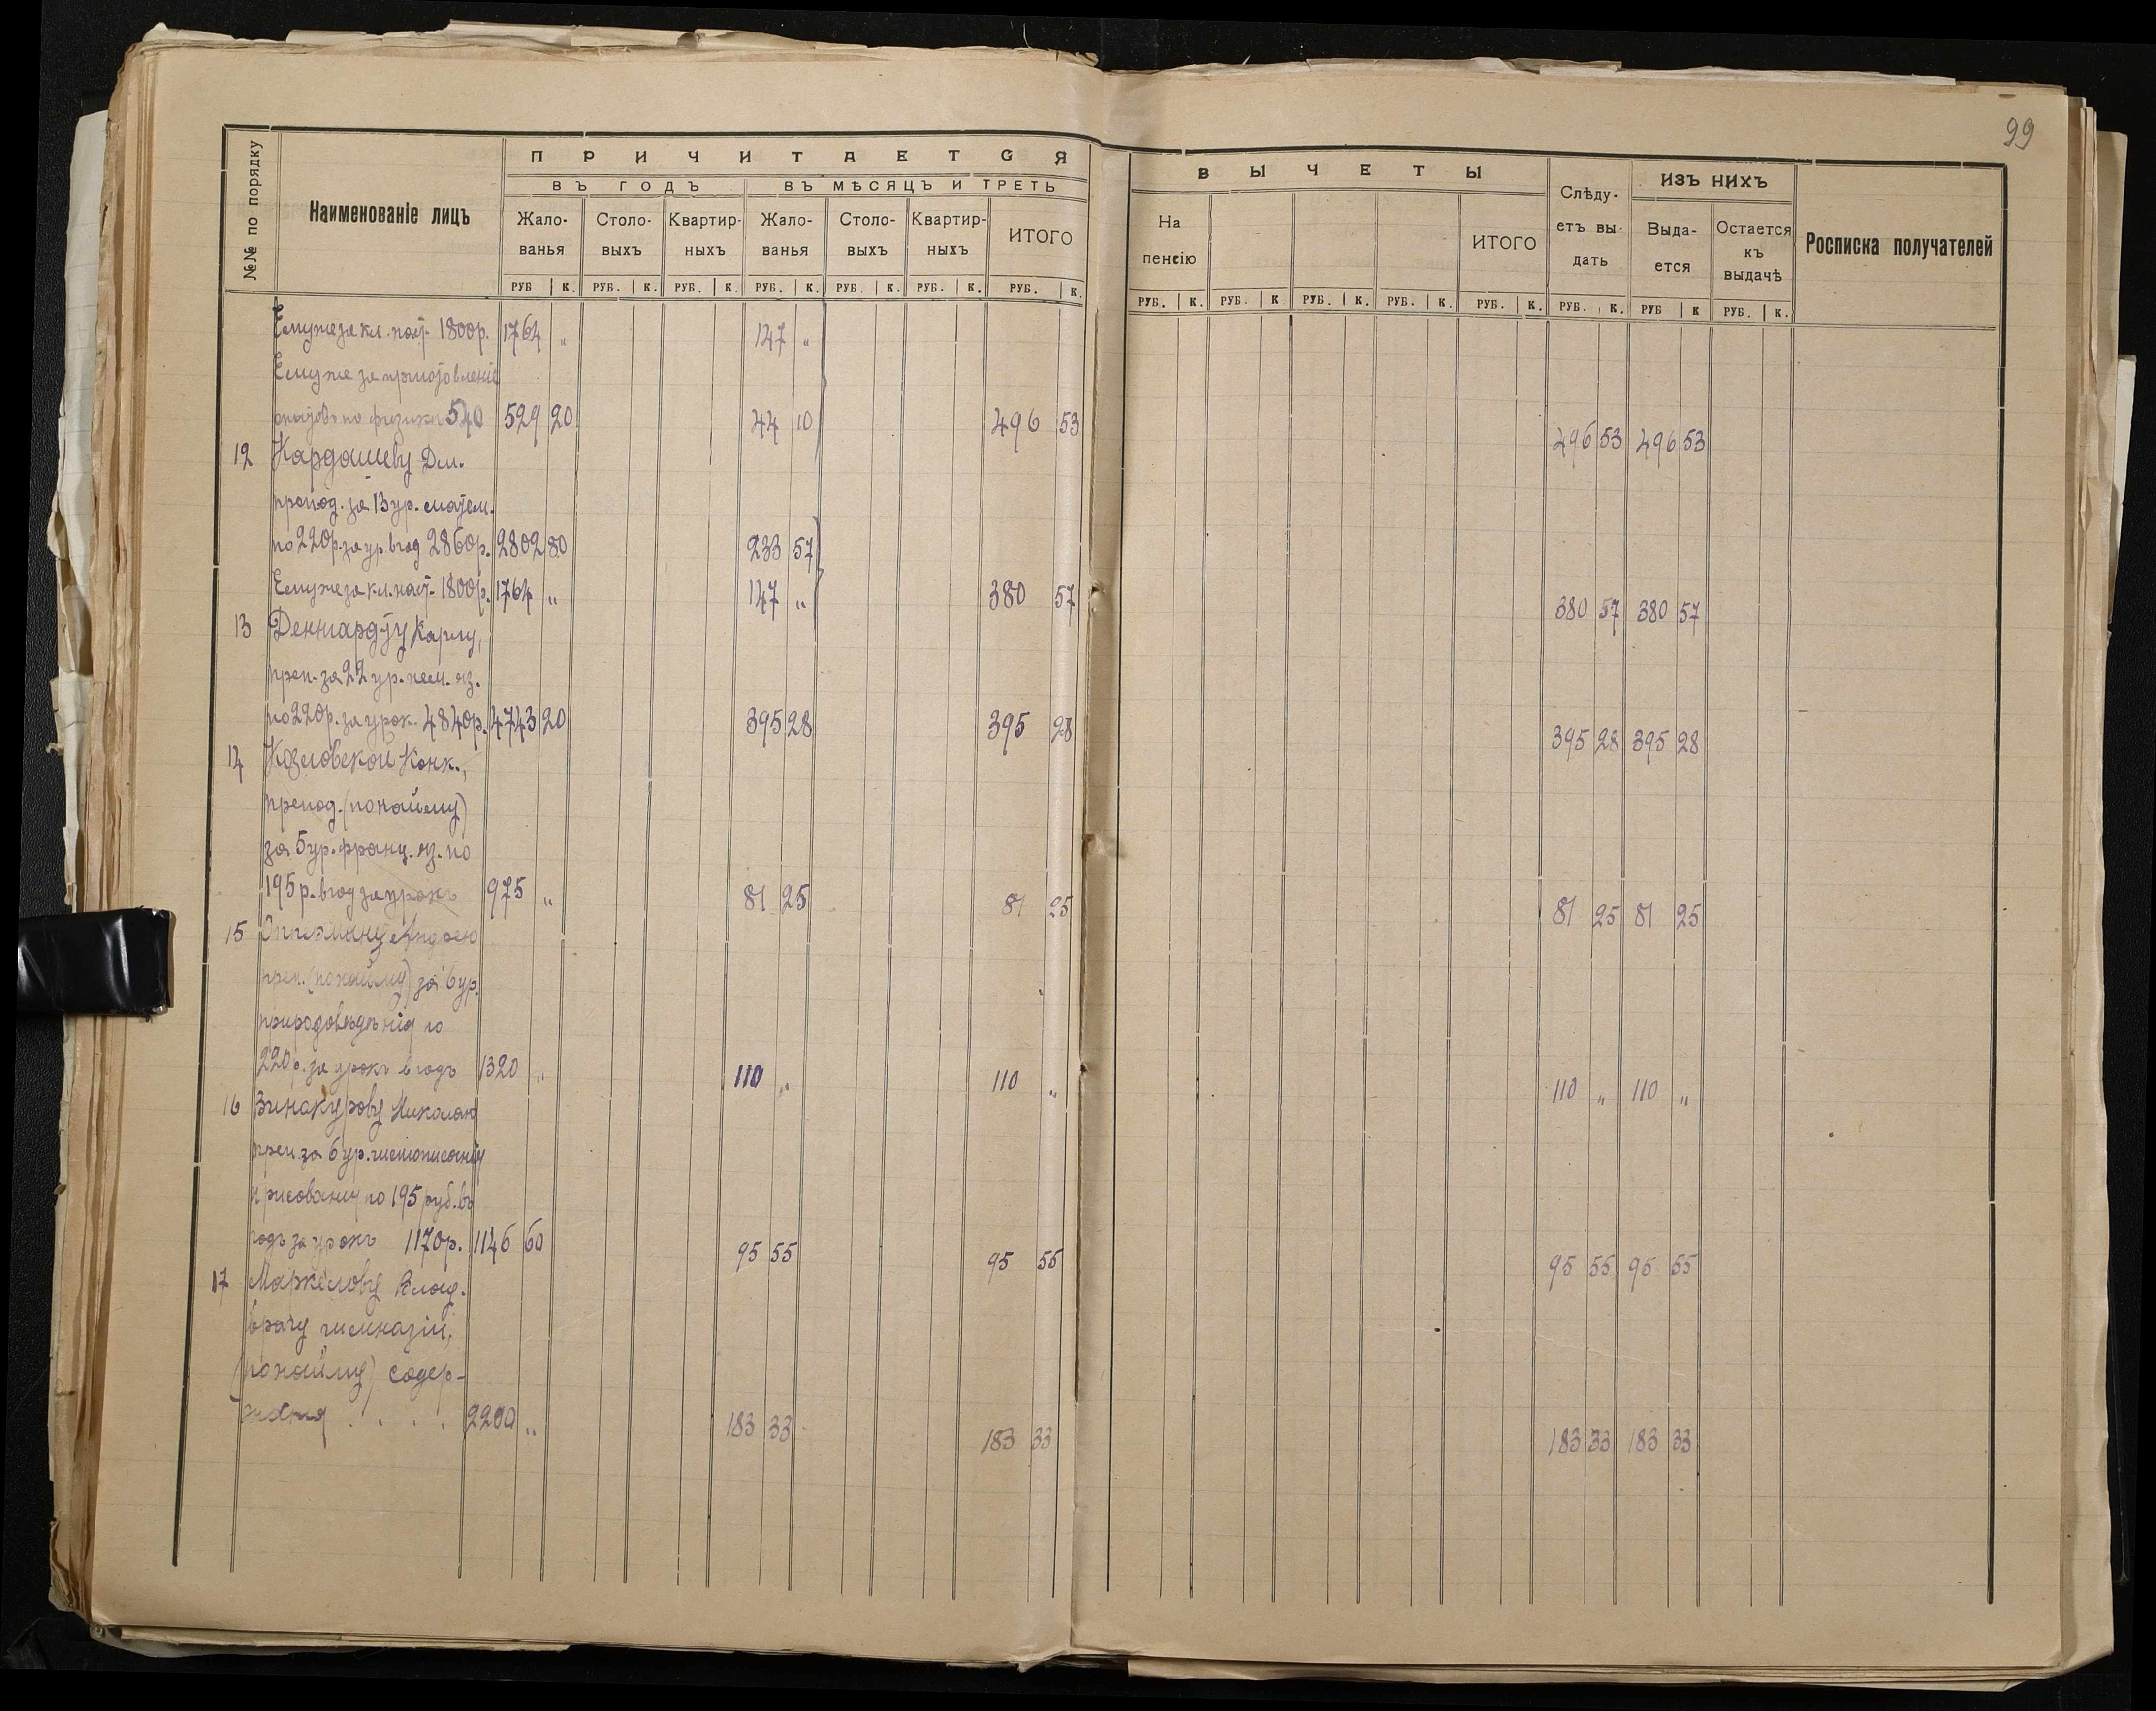 99
№№ по порядку
Наименованіе лицъ
ПРИЧИТАЕТСЯ
ВЪ ГОДЪ
ВЪ МѢСЯЦЪ И ТРЕТЬ
Жало-
ванья
Столо-
выхъ
Квартир-
ныхъ
Жало-
ванья
Столо-
выхъ
Квартир-
ныхъ
ИТОГО
РУБ К. РУБ. К. РУБ. К. РУБ. К. РУБ. К. РУБ. К. РУБ. К.
ВЫЧЕТЫ
На
пенсію
ИТОГО
Слѣду-
етъ вы
дать
ИЗЪ НИХЪ
Выда-
ется
Остается
къ
выдачѣ
Росписка получателей
РУБ. К. РУБ. К РУБ. К. РУБ. К. РУБ. К. РУБ. К. РУБ К РУБ. К.
Ему же за кл. наст. 1800р. 1764 „ 147 „
Ему же за приготовленіе
опытовъ по физикѣ 540 529 20 44 10 496 53 496 53 496 53
12 Кардашеву Дм.
препод. за 13 ур. матем.
по 220р. за ур. в год 2860р. 2802 80 233 57
Ему же за кл. наст. 1800р. 1764 „ 147 „ 380 57 380 57 380 57
13 Денгардту Карлу,
преп. за 22 ур. нем. яз.
по 220р. за урок. 4840р. 4743 20 395 28 395 28 395 28 395 28
14 Козловской Конк.,
препод. (по найму)
за 5 ур. франц. яз. по
195р. в год за урокъ 975 „ 81 25 81 25 81 25 81 25
15 Андрею
преп. (по найму) за 6 ур.
природовѣдѣнія по
220р. за урокъ в годъ 1320 „ 110 „ 110 „ 110 „ 110 „
16 Винокурову Николаю
преп. за 6 ур. чистописанія
и рисованія по 195 руб. въ
годъ за урокъ 1170р. 1146 60 95 55 95 55 95 55 95 55
17 Маркелову Влад.
врачу гимназіи,
(по найму) содер-
жанія . . . . 2200 „ 183 33 183 33 183 33 183 33